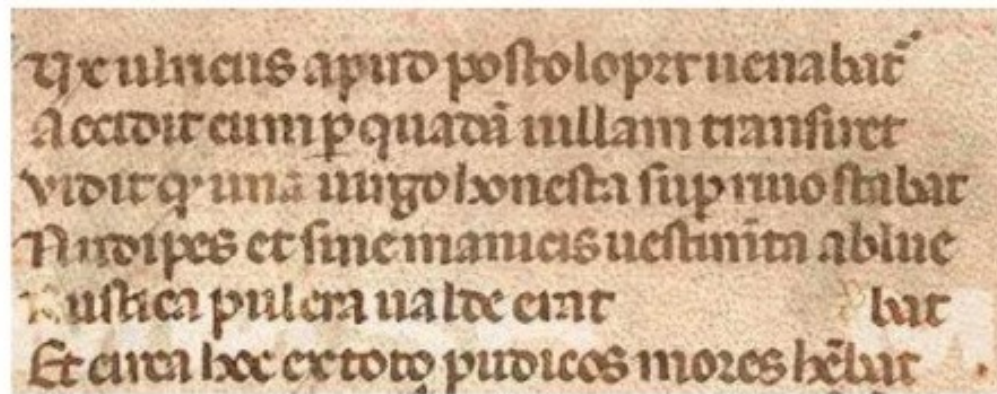 Vx ulricus apud postoloprt uenabat̄
Accidit cum ꝑ quadā uillam transiret
Vidit qͥ una uirgo honesta suꝑ riuo stabat
Nudipes et sine manicis uestim̄ta ablue
Rustica pulcra ualde erat bat
Et circa hoc ex toto pudicos mores hēbat